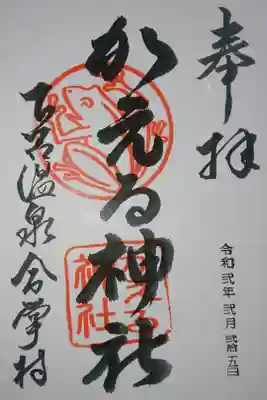 奉拝
かえる神社
下呂温泉合掌村
令和弐年 弐月 弐拾五日